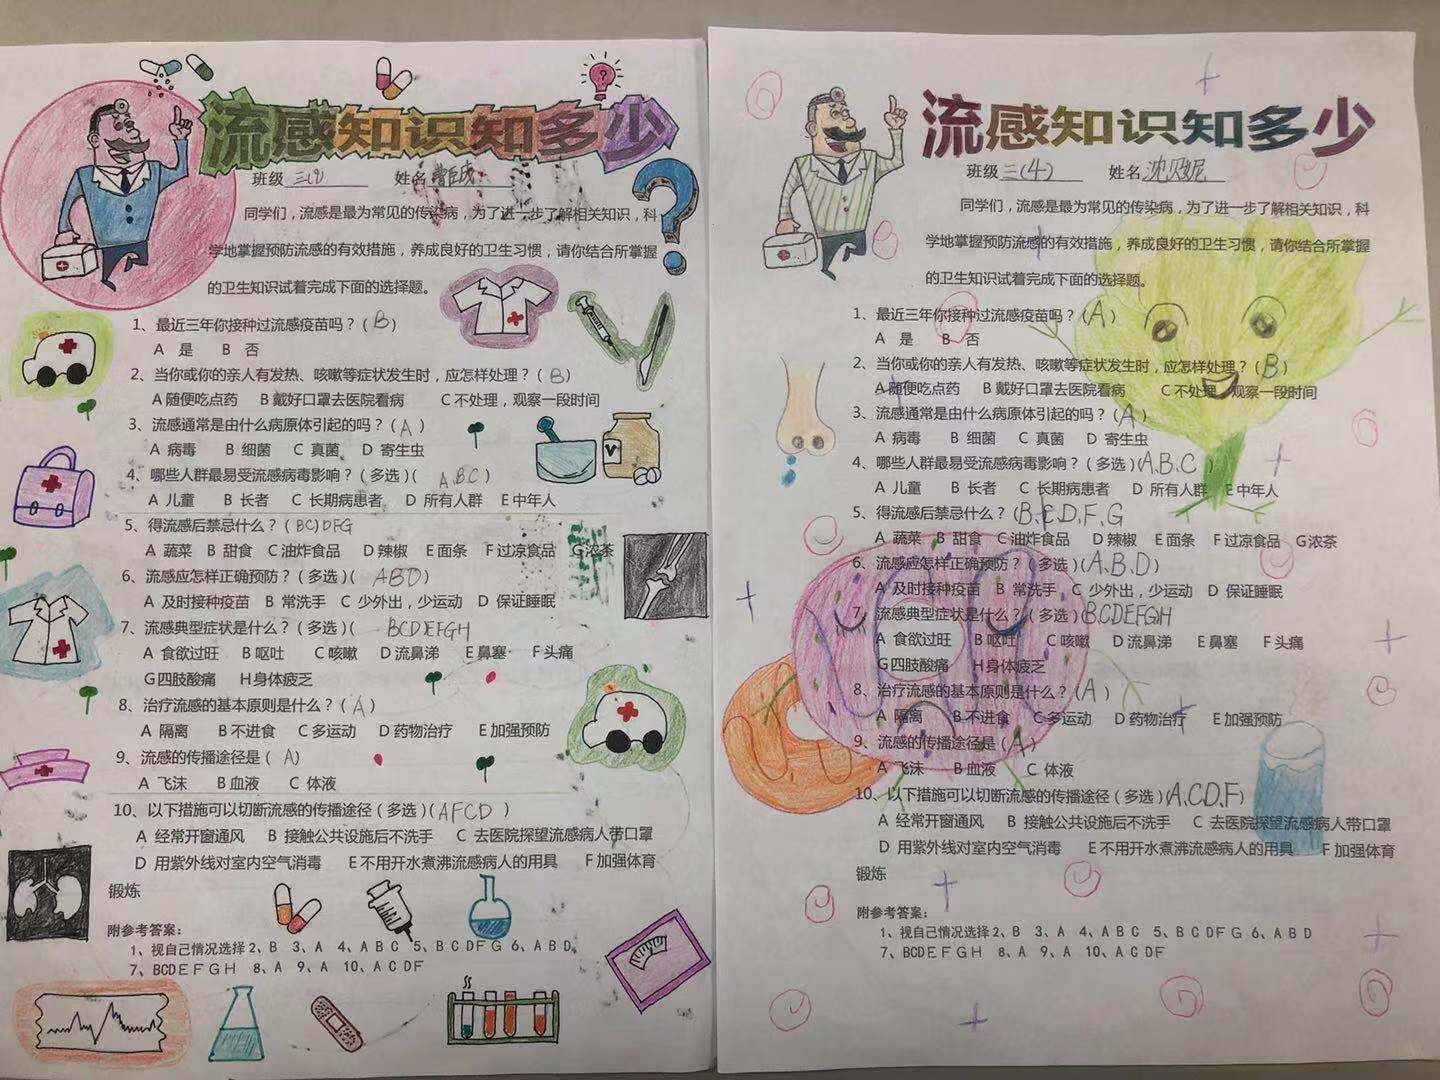 流感知识知多少
班级 三(1) 姓名
同学们，流感是最为常见的传染病，为了进一步了解相关知识，科
学地掌握预防流感的有效措施，养成良好的卫生习惯，请你结合所掌握
的卫生知识试着完成下面的选择题。
1、最近三年你接种过流感疫苗吗？（B）
A 是 B 否
2、当你或你的亲人有发热、咳嗽等症状发生时，应怎样处理？（B）
A随便吃点药 B 戴好口罩去医院看病 C 不处理，观察一段时间
3、流感通常是由什么病原体引起的吗？（A）
A 病毒 B 细菌 C 真菌 D 寄生虫
4、哪些人群最易受流感病毒影响？（多选）（A.B.C）
A 儿童 B 长者 C 长期病患者 D 所有人群 E 中年人
5、得流感后禁忌什么？（BC）DFG
A 蔬菜 B 甜食 C油炸食品 D辣椒 E面条 F过凉食品 G浓茶
6、流感应怎样正确预防？（多选）（ABD）
A 及时接种疫苗 B 常洗手 C 少外出，少运动 D 保证睡眠
7、流感典型症状是什么？（多选）（BCDEFGH
A 食欲过旺 B呕吐 C咳嗽 D流鼻涕 E鼻塞 F头痛
G四肢酸痛 H身体疲乏
8、治疗流感的基本原则是什么？（A）
A 隔离 B不进食 C多运动 D药物治疗 E加强预防
9、流感的传播途径是（A）
A 飞沫 B血液 C 体液
10、以下措施可以切断流感的传播途径（多选）（AFCD）
A 经常开窗通风 B 接触公共设施后不洗手 C 去医院探望流感病人带口罩
D 用紫外线对室内空气消毒 E不用开水煮沸流感病人的用具 F加强体育
锻炼
附参考答案：
1、视自己情况选择 2、B 3、A 4、A B C 5、B C D F G 6、A B D
7、BCD E F G H 8、A 9、A 10、A C D F
流感知识知多少
班级 三(4) 姓名 沈贝妮
同学们，流感是最为常见的传染病，为了进一步了解相关知识，科
学地掌握预防流感的有效措施，养成良好的卫生习惯，请你结合所掌握
的卫生知识试着完成下面的选择题。
1、最近三年你接种过流感疫苗吗？（A）
A 是 B 否
2、当你或你的亲人有发热、咳嗽等症状发生时，应怎样处理？（B）
A随便吃点药 B 戴好口罩去医院看病 C 不处理，观察一段时间
3、流感通常是由什么病原体引起的吗？（A）
A 病毒 B 细菌 C 真菌 D 寄生虫
4、哪些人群最易受流感病毒影响？（多选）（A.B.C）
A 儿童 B 长者 C 长期病患者 D 所有人群 E 中年人
5、得流感后禁忌什么？（B.C.D.F.G
A 蔬菜 B 甜食 C油炸食品 D辣椒 E面条 F过凉食品 G浓茶
6、流感应怎样正确预防？（多选）（A.B.D）
A 及时接种疫苗 B 常洗手 C 少外出，少运动 D 保证睡眠
7、流感典型症状是什么？（多选）BCDEFGH
A 食欲过旺 B呕吐 C咳嗽 D流鼻涕 E鼻塞 F头痛
G四肢酸痛 H身体疲乏
8、治疗流感的基本原则是什么？（A）
A 隔离 B不进食 C多运动 D药物治疗 E加强预防
9、流感的传播途径是（A）
A 飞沫 B血液 C 体液
10、以下措施可以切断流感的传播途径（多选）（A.C.D.F）
A 经常开窗通风 B 接触公共设施后不洗手 C 去医院探望流感病人带口罩
D 用紫外线对室内空气消毒 E不用开水煮沸流感病人的用具 F加强体育
锻炼
附参考答案：
1、视自己情况选择 2、B 3、A 4、A B C 5、B C D F G 6、A B D
7、BCD E F G H 8、A 9、A 10、A C D F